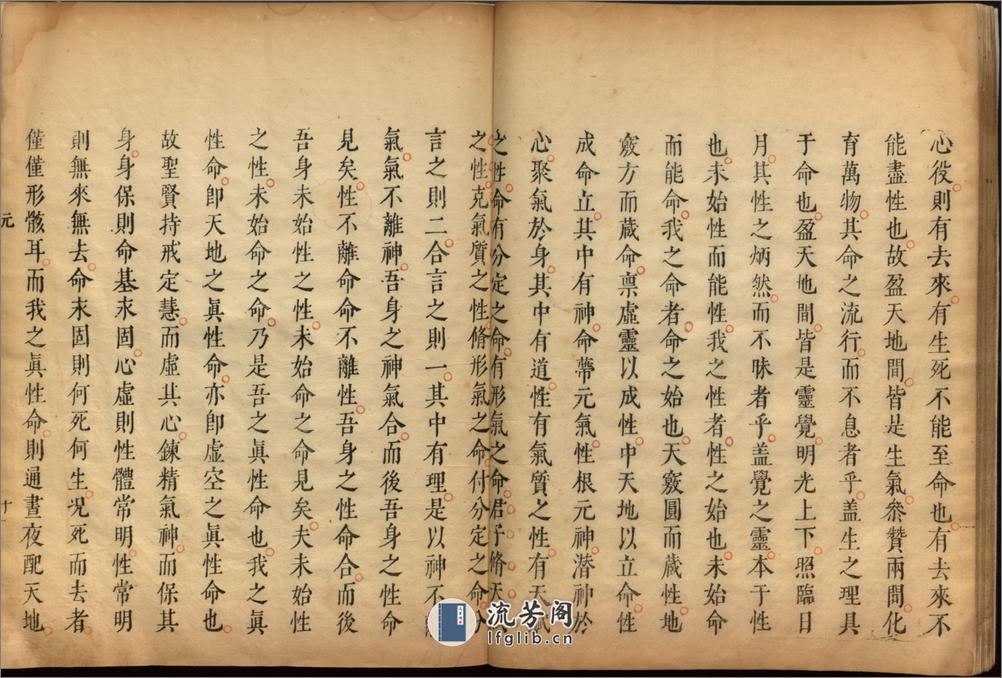 心役則有去來有生死不能至命也有去來不
能盡性也故盈天地間皆是生氣叅贊兩間化
育萬物其命之流行而不息者乎盖生之理具
于命也盈天地間皆是靈覺明光上下照臨日
月其性之炳然而不昧者乎盖覺之靈本于性
也未始性而能性我之性者性之始也未始命
而能命我之命者命之始也天竅圓而藏性地
竅方而藏命禀虛靈以成性中天地以立命性
成命立其中有神命蔕元氣性根元神潜神於
心聚氣於身其中有道性有氣質之性有天賦
之性命有分定之命有形氣之命君子脩天
之性克氣質之性脩形氣之命付分定之命分
言之則二合言之則一其中有理是以神不
氣氣不離神吾身之神氣合而後吾身之性命
見矣性不離命命不離性吾身之性命合而後
吾身未始性之性未始命之命見矣夫未始性
之性未始命之命乃是吾之眞性命也我之眞
性命卽天地之眞性命亦卽虛空之眞性命也
故聖賢持戒定慧而虛其心鍊精氣神而保其
身身保則命基永固心虛則性體常明性常明
則無來無去命永固則何死何生况死而去者
僅僅形骸耳而我之眞性命則通晝夜配天地
元
十
流芳阁
lfglib.cn